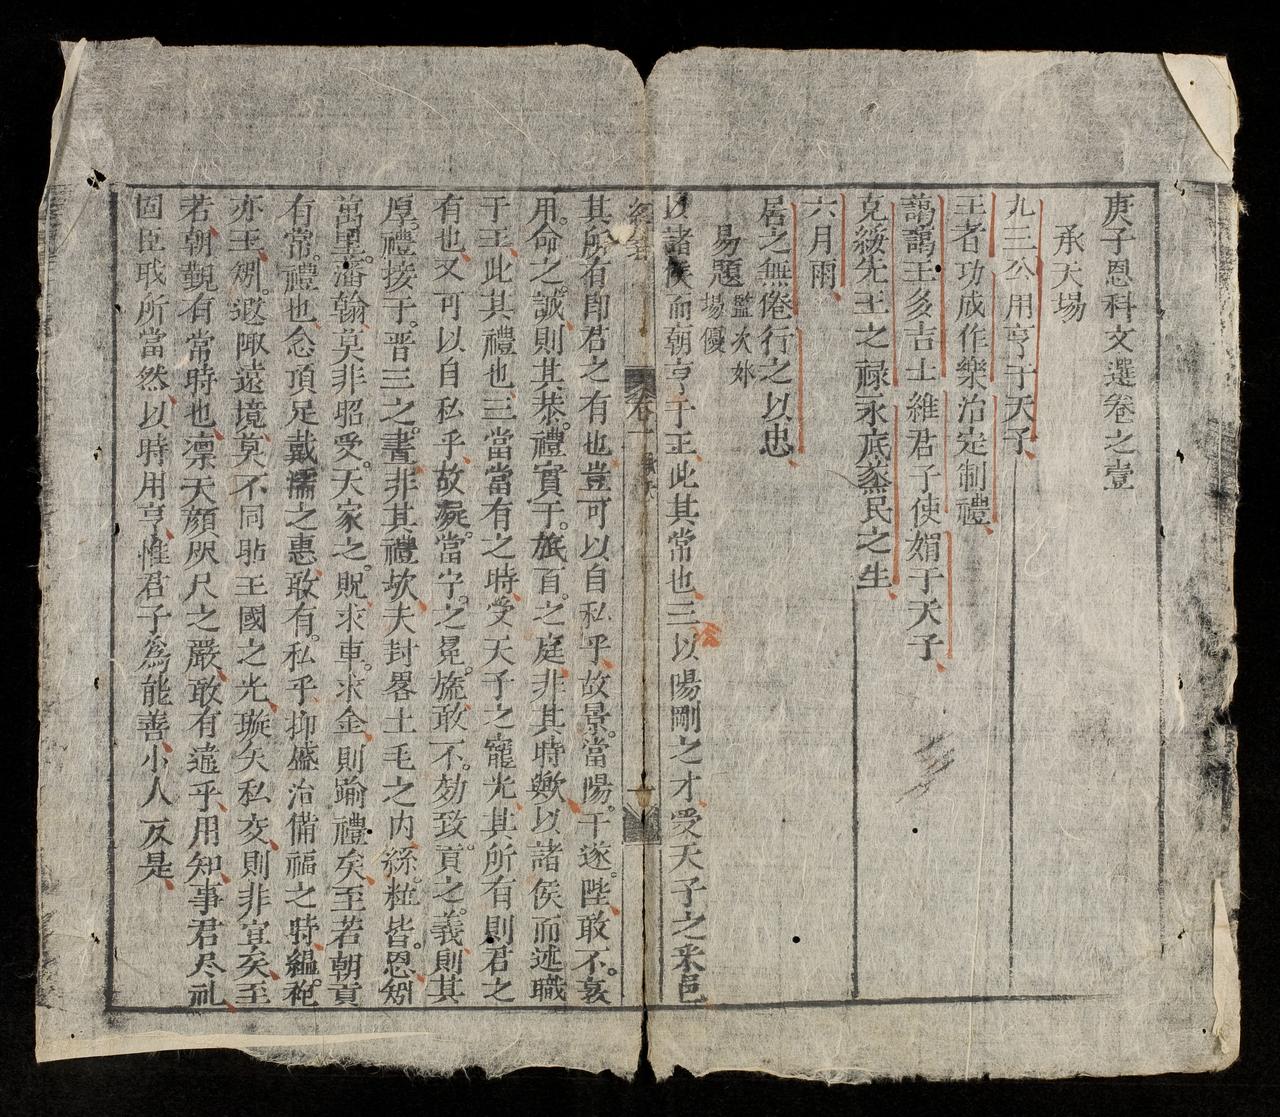 庚子恩科文選卷之壹
承天場
九三公用亨于天子
王者功成作樂治定制禮
藹藹王多吉士維君子使媚于天子
克綏先王之祿永底烝民之生
六月雨
居之無倦行之以忠
易題
監次
場優
以諸侯而朝亨于王此其常也三以陽剛之才受天子之采邑
卷一
其所有即君之有也豈可以自私乎故景當陽于遂陛敢不哀
用命之誠則其恭禮實于旅百之庭非其時歟以諸侯而述職
于王此其禮也三當當有之時受天子之寵光其所有則君之
有也又可以自私乎故扆當宁之冕旒敢不効致貢之義則其
厚禮接于晋三之書非其禮欤夫封畧土毛之內絲粒皆恩矧
萬里藩翰莫非昭受天家之貺求車求金則踰禮矣至若朝貢
有常禮也念頂足戴濡之惠敢有私乎抑盛治備福之時緼袍
亦王矧遐陬遠境莫不同貼王國之光璇矢私交則非宜矣至
若朝覲有常時也凛天顔咫尺之嚴敢有違乎用知事君尽礼
固臣戝所當然以時用亨惟君子為能善小人反是